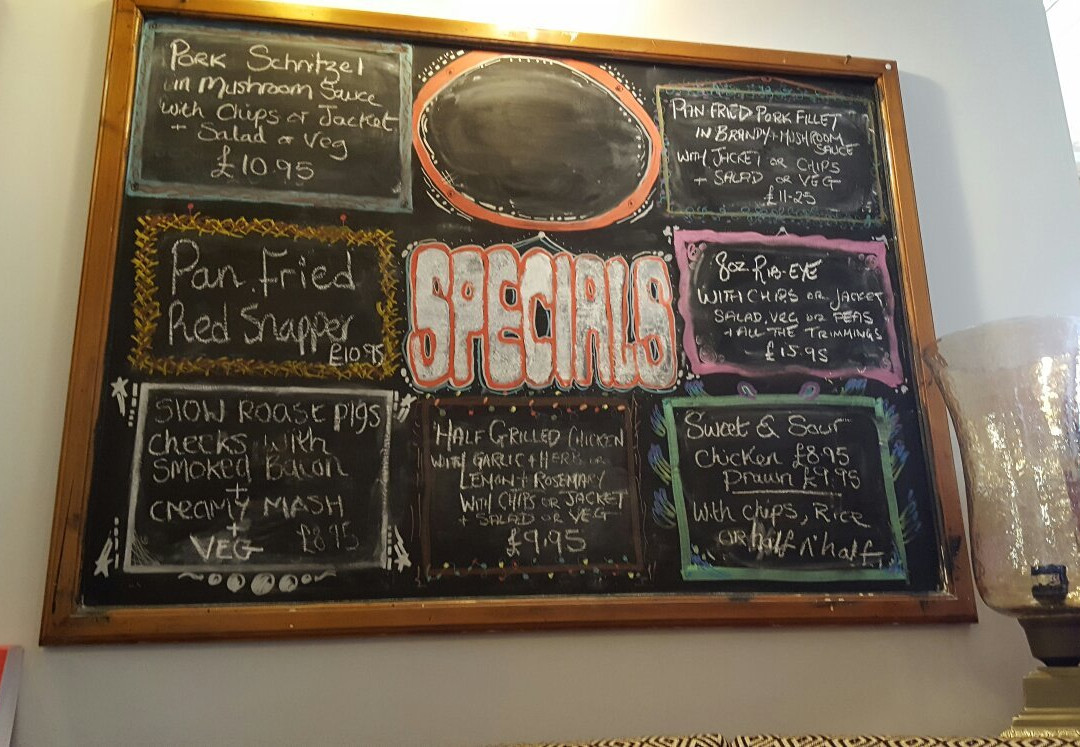 Pork Schnitzel
in Mushroom Sauce
with Chips or Jacket
+ Salad or Veg
£10.95
PAN FRIED PORK FILLET
IN BRANDY + MUSHROOM
SAUCE
WITH JACKET OR CHIPS
+ SALAD OR VEG
£11-25
Pan Fried
Red Snapper
£10.95
SPECIALS
8oz RIB-EYE
WITH CHIPS OR JACKET
SALAD, VEG OR PEAS
+ ALL THE TRIMMINGS
£15.95
Slow Roast pigs
checks with
smoked Bacon
+
creamy MASH
+
VEG £8.95
HALF GRILLED CHICKEN
WITH GARLIC + HERB OR
LEMON + ROSEMARY
WITH CHIPS OR JACKET
+ SALAD OR VEG
£9.95
Sweet & Sour
chicken £8.95
Prawn £9.95
With chips, Rice
OR half n' half